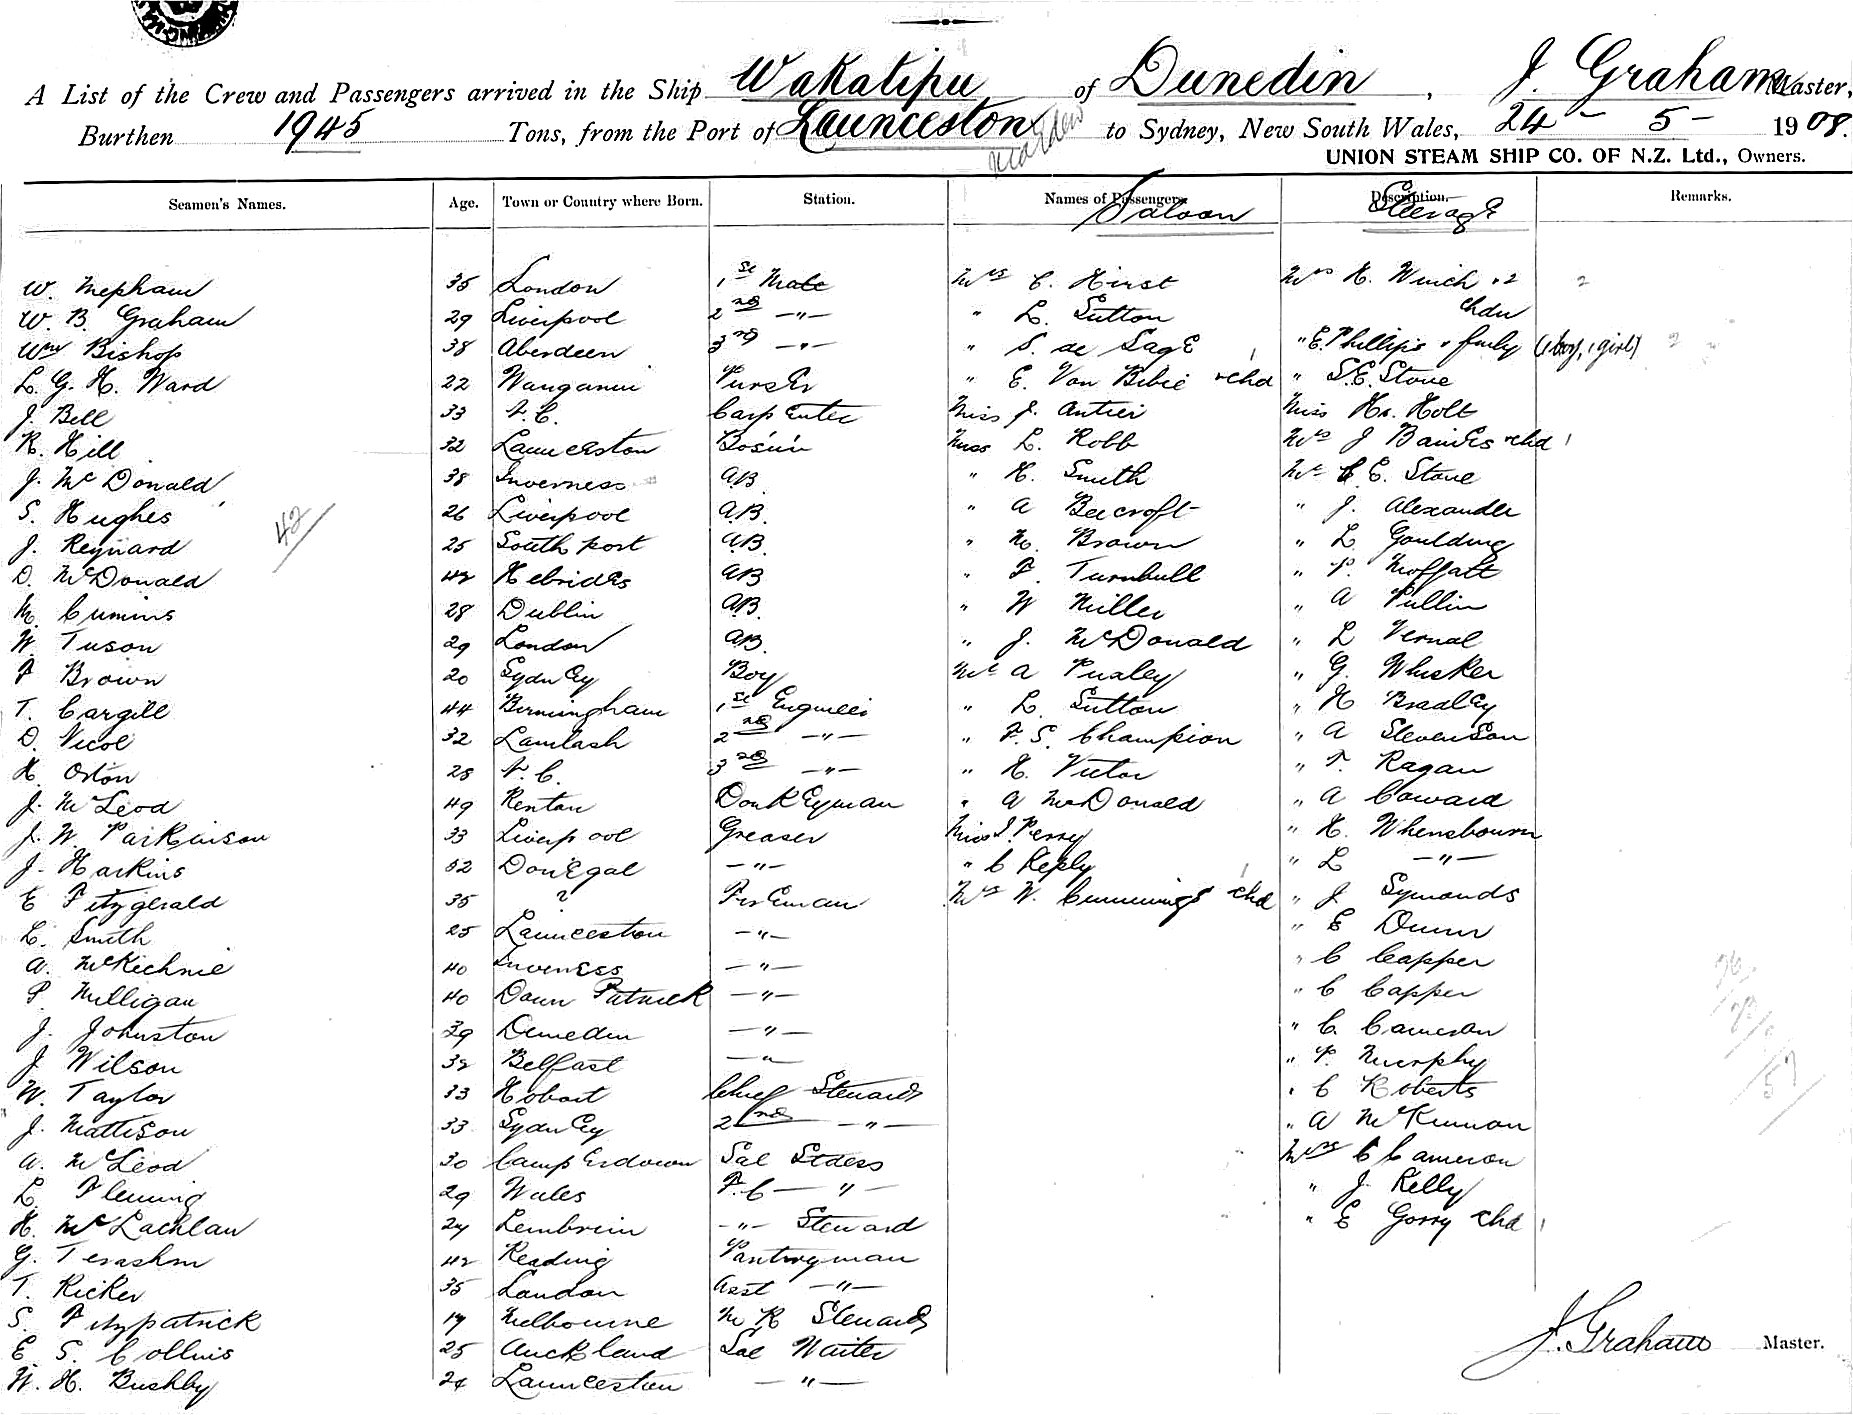 A List of the Crew and Passengers arrived in the Ship Wakatipu of Dunedin, J. Graham Master,
Burthen 1945 Tons, from the Port of Launceston to Sydney, New South Wales, 24 - 5 - 1908.
UNION STEAM SHIP CO. OF N.Z. Ltd., Owners.
Seamen's Names. Age. Town or Country where Born. Station. Names of Passengers. Description. Remarks.
Saloon Steerage
W. Mepham 35 London 1st Mate Mrs C. Hirst Mrs H. Winch & 2 2
chdn
W. B. Graham 29 Liverpool 2nd -"- " L. Sutton
Wm Bishop 38 Aberdeen 3rd -"- " S. de Sage " E. Phillips & family (1 boy, 1 girl) 2
L. G. H. Ward 22 Wanganui Purser " E. Von Bibie & chd 1 " S. E. Stone
J. Bell 33 N. C. Carpenter Miss J. Antier Miss Hr. Holt
R. Hill 32 Launceston Bos'un Miss L. Robb Mrs J Baines & chd 1
J. McDonald 38 Inverness AB. " H. Smith Mr C. E. Stone
S. Hughes 26 Liverpool A.B. " A Beecroft " J. Alexander
42
J. Reynard 25 South port A.B. " M. Brown " L Goulding
D. McDonald 42 Hebrides AB " F. Turnbull " P. Moffatt
M. Cumins 28 Dublin A.B. " W Miller " A Pullin
W. Tuson 29 London AB. " J. McDonald " L Vernal
F Brown 20 Sydney Boy Mr A Pualey " G. Whisker
T. Cargill 44 Birmingham 1st Engineer " L. Sutton " H Bradley
D. Nicol 32 Lamlash 2nd -"- " F. S. Champion " A Stevenson
H. Orton 28 N. C. 3rd -"- " H. Victor " T. Ragan
J. McLeod 49 Renton Donkeyman " A McDonald " A Coward
J. W. Parkinson 33 Liverpool Greaser Miss I. Perry " H. Whensbourn
J. Harkins 52 Donegal -"- " C Reply " L -"-
E Fitzgerald 35 ? Fireman Mrs W. Cummings & chd 1 " J. Symonds
L. Smith 25 Launceston -"- " E Dunn
A. McKechnie 40 Inverness -"- " C Capper
P. Milligan 40 Down Patrick -"- " C Capper
J. Johnston 39 Dunedin -"- " C. Cameron
J Wilson 32 Belfast -"- " P. Murphy
W. Taylor 33 Hobart Chief Steward " C Roberts
J. Mattison 33 Sydney 2nd -"- " A McKinnon
A. McLeod 30 Camperdown Sal Stdess Mrs C Cameron
L Fleming 29 Wales F. C -"- " J. Kelly
H. McLachlan 24 -"- Steward " E Gorry & chd 1
G. 42 Reading Pantryman
T. Ricker 35 London Asst -"-
S. Fitzpatrick 19 Melbourne M R Steward
E S. Collins 25 Auckland Sal Waiter
W. H. Bushby 24 Launceston -"-
J. Graham Master.